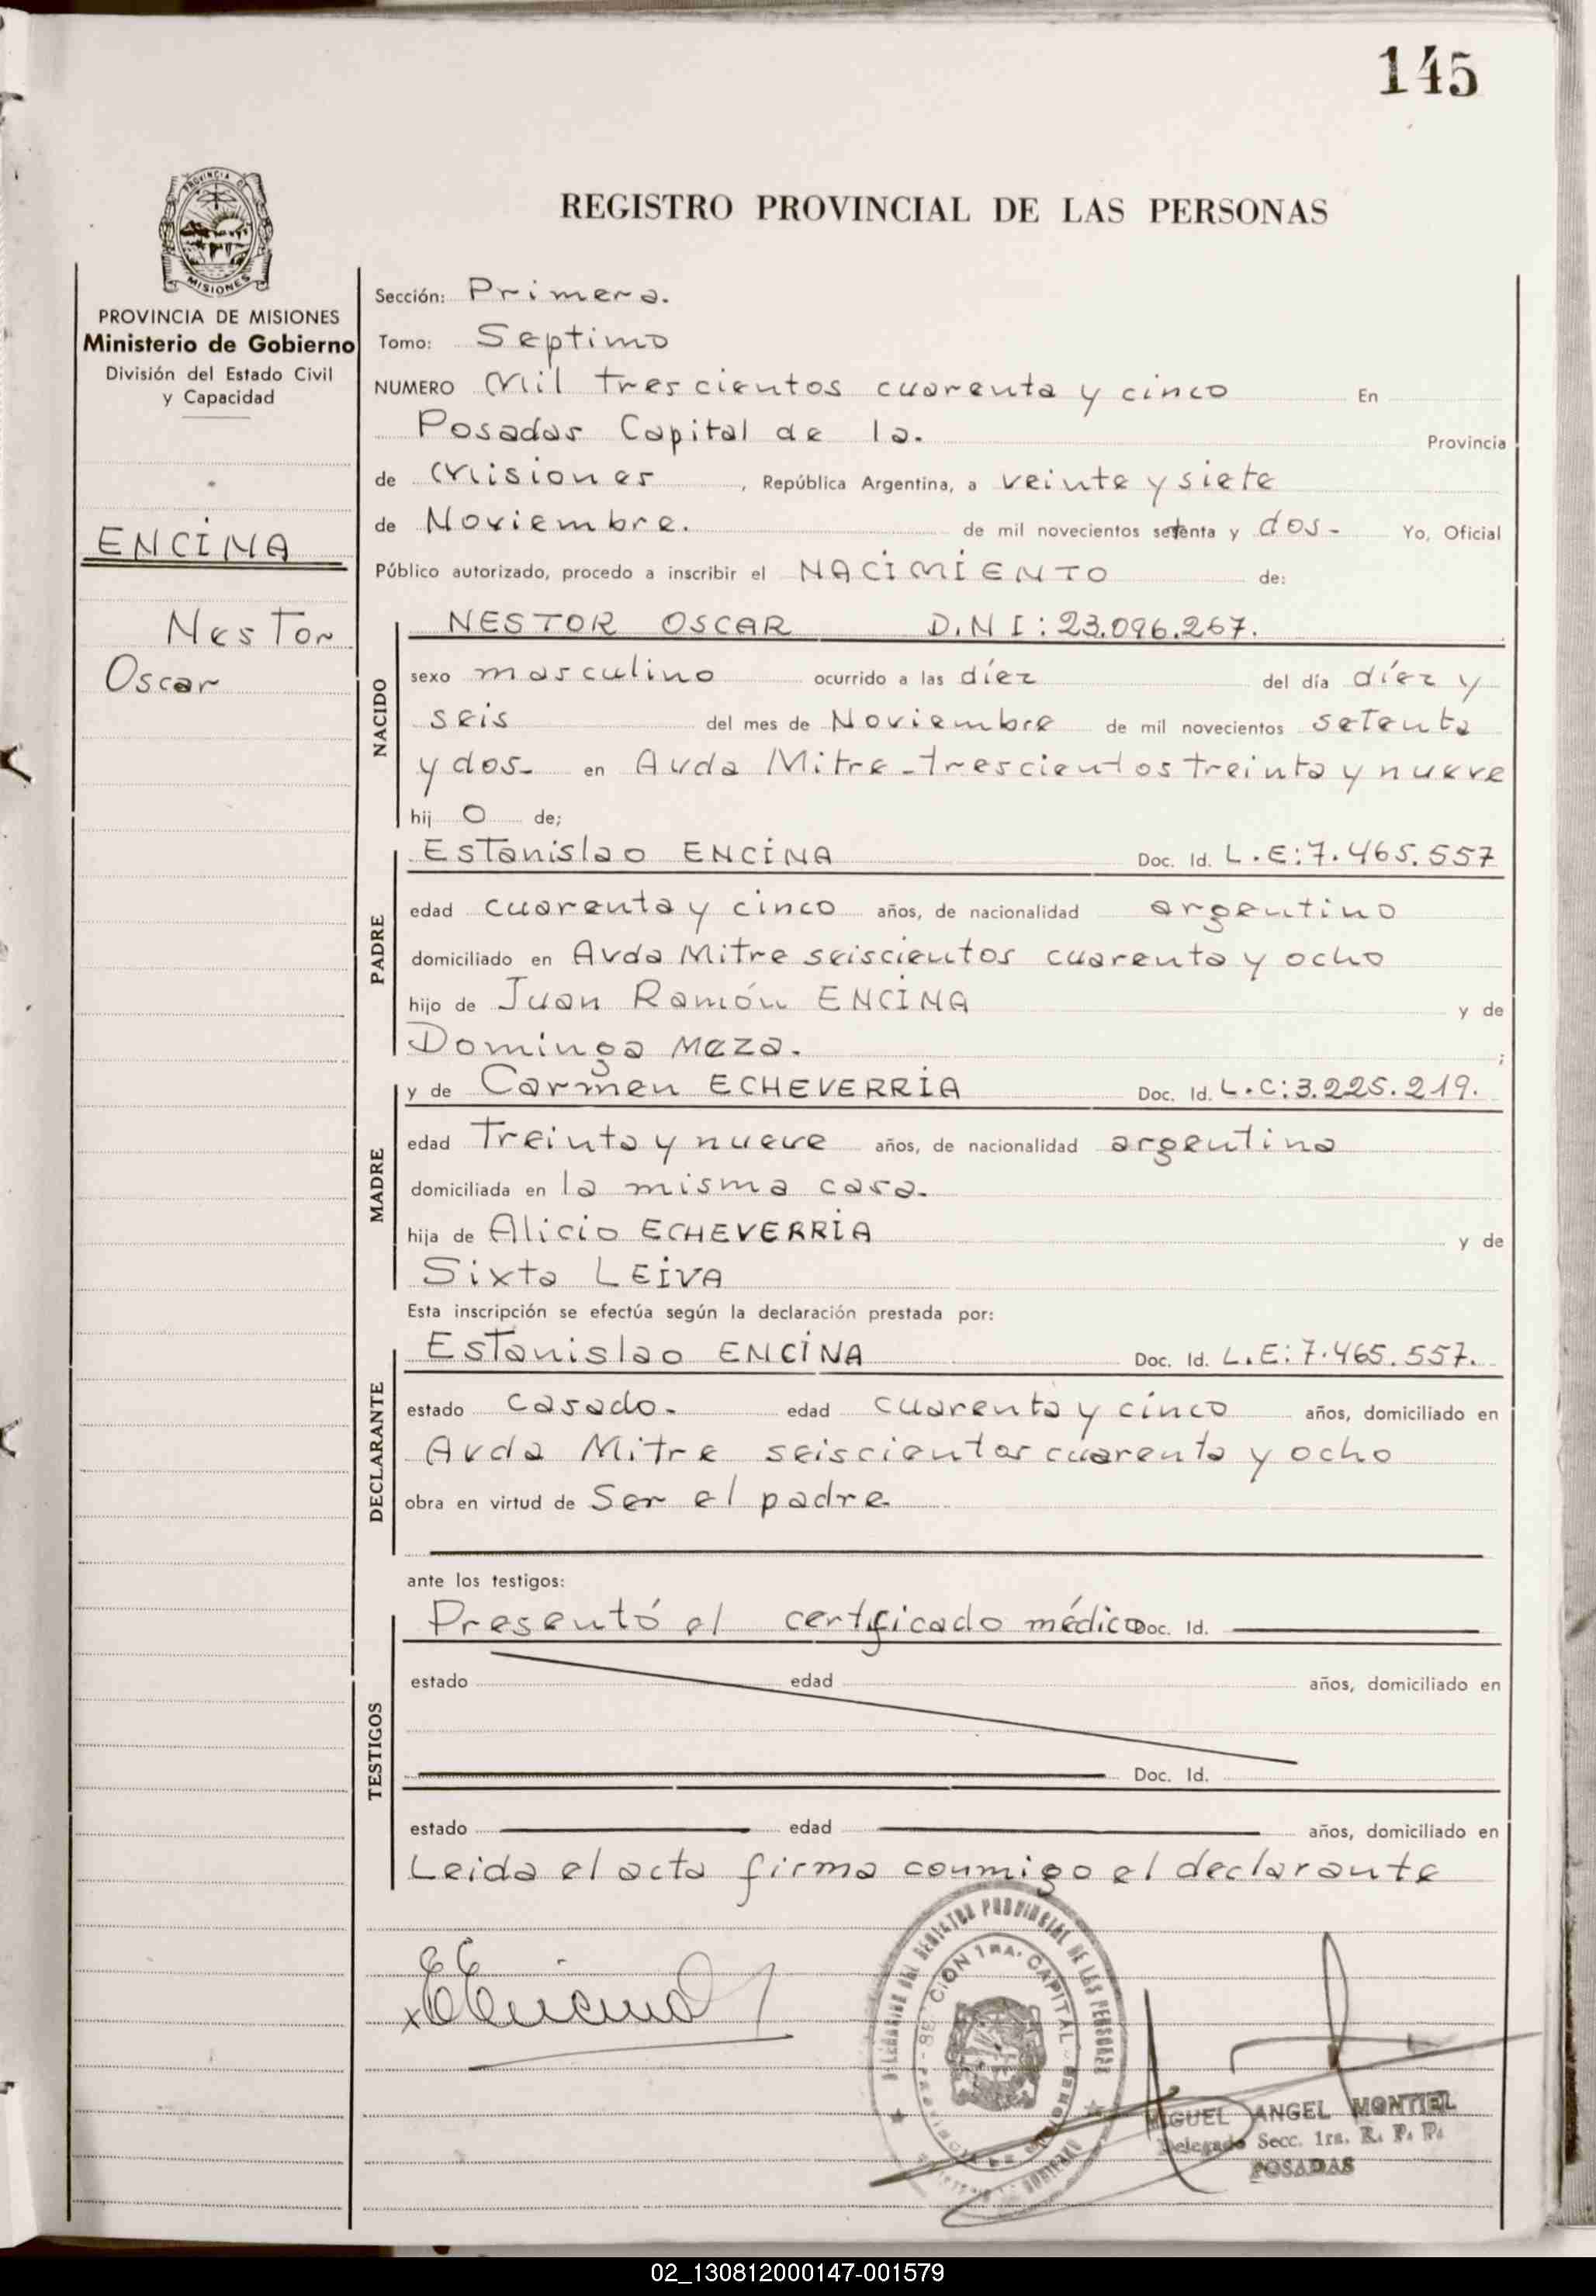 145
PROVINCIA DE
MISIONES
REGISTRO PROVINCIAL DE LAS PERSONAS
PROVINCIA DE MISIONES
Ministerio de Gobierno
División del Estado Civil
y Capacidad
ENCINA
Nestor
Oscar
Sección: Primera.
Tomo: Septimo
NUMERO Mil trescientos cuarenta y cinco En
Posadas Capital de la. Provincia
de Misiones, República Argentina, a veinte y siete
de Noviembre. de mil novecientos setenta y dos- Yo, Oficial
Público autorizado, procedo a inscribir el NACIMIENTO de:
NACIDO
NESTOR OSCAR D.N I: 23.096.267.
sexo masculino ocurrido a las díez del día díez y
seis del mes de Noviembre de mil novecientos setenta
y dos- en Avda Mitre-trescientos treinta y nueve
hij O de;
PADRE
Estanislao ENCINA Doc. Id. L.E:7.465.557
edad cuarenta y cinco años, de nacionalidad argentino
domiciliado en Avda Mitre seiscientos cuarenta y ocho
hijo de Juan Ramón ENCINA y de
Dominga Meza. ;
MADRE
y de Carmen ECHEVERRIA Doc. Id. L.C:3.225.219.
edad Treinta y nueve años, de nacionalidad argentina
domiciliada en la misma casa.
hija de Alicio ECHEVERRIA y de
Sixta LEIVA
Esta inscripción se efectúa según la declaración prestada por:
DECLARANTE
Estanislao ENCINA Doc. Id. L.E:7.465.557.
estado casado- edad cuarenta y cinco años, domiciliado en
Avda Mitre seiscientos cuarenta y ocho
obra en virtud de Ser el padre
ante los testigos:
TESTIGOS
Presentó el certificado médico Doc. Id.
estado edad años, domiciliado en
Doc. Id.
estado edad años, domiciliado en
Leida el acta firma conmigo el declarante
DEL REGISTRO PROVINCIAL DE LAS PERSONAS
SECCION 1RA. CAPITAL
x EEncina
MIGUEL ANGEL MONTIEL
Delegado Secc. 1ra. R. P. P.
POSADAS
02_130812000147-001579